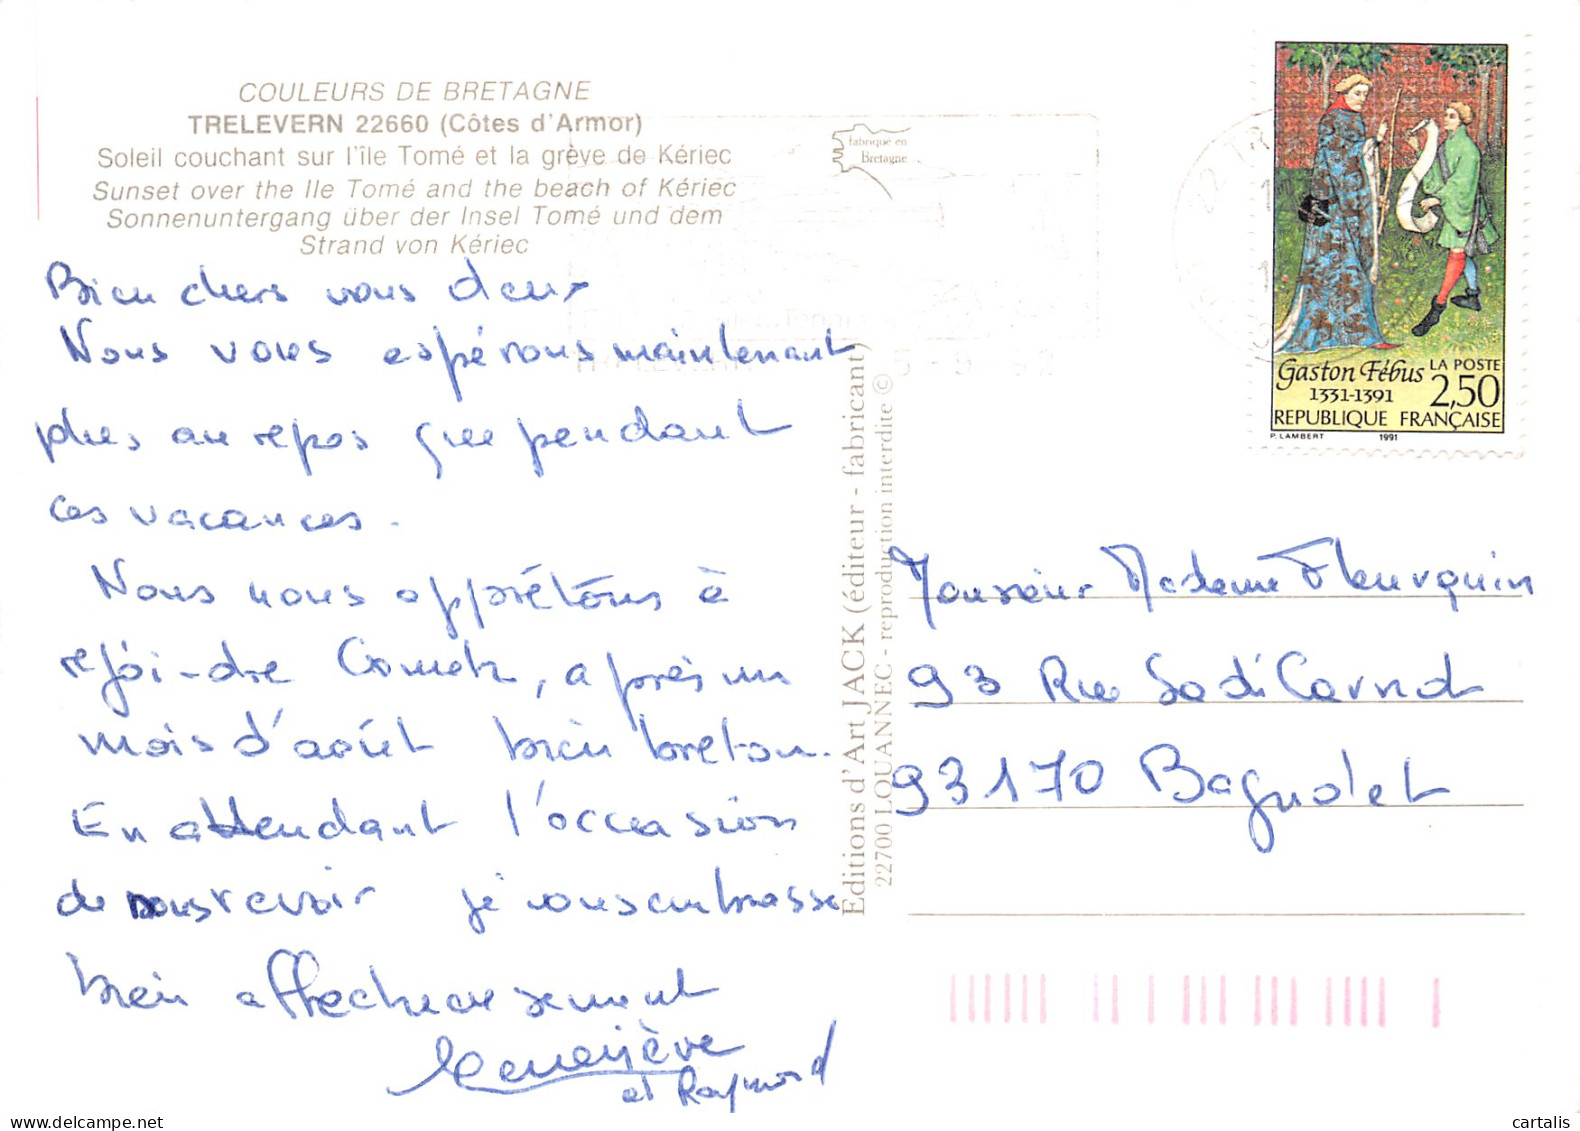 COULEURS DE BRETAGNE
TRELEVERN 22660 (Côtes d'Armor)
Soleil couchant sur l'île Tomé et la grève de Kériec
Sunset over the Ile Tomé and the beach of Kériec
Sonnenuntergang über der Insel Tomé und dem
Strand von Kériec
fabriqué en
Bretagne
Bien chers vous deux
Nous vous espérons maintenant
plus au repos que pendant
ces vacances.
Nous nous apprêtons à
rejoindre, après un
mois d'août bien breton.
En attendant l'occasion
de nous revoir je vous embrasse
bien affectueusement
Geneviève
et Raymond
Editions d'Art JACK (éditeur - fabricant)
22700 LOUANNEC - reproduction interdite ©
5-9-92
22 TR
Gaston Fébus
1331-1391
LA POSTE
2,50
REPUBLIQUE FRANÇAISE
P. LAMBERT 1991
Monsieur Madame
93 Rue Sadi Carnot
93170 Bagnolet
cartalis